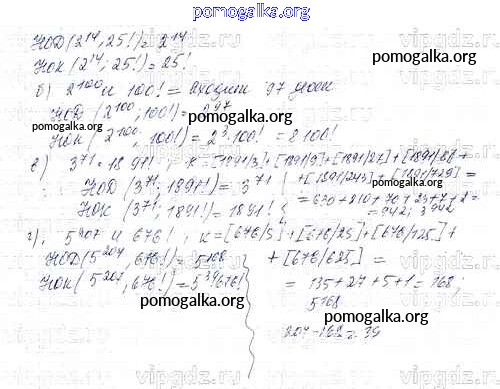 pomogalka.org
НОД(2^14, 25!) = 2^14
НОК(2^14; 25!) = 25!
б) 2^100 и 100! = входит 97 раз
НОД (2^100, 100!) = 2^97
pomogalka.org
НОК (2^100, 100!) = 2^3·100! = 8·100!
pomogalka.org
в) 3^71 и 1891! ; k = [1891/3] + [1891/9] + [1891/27] + [1891/81] +
+ [1891/243] + [1891/729] =
НОД (3^71, 1891!) = 3^71
= 630 + 210 + 70 + 23 + 7 + 2 =
= 942; 3^942
НОК (3^71, 1891!) = 1891!
pomogalka.org
г) 5^207 и 676! , k = [676/5] + [676/25] + [676/125] +
+ [676/625] =
НОД(5^207, 676!) = 5^168
НОК(5^207, 676!) = 5^39·676!
= 135 + 27 + 5 + 1 = 168;
5^168
207 - 168 = 39
pomogalka.org
pomogalka.org
vipgdz.ru